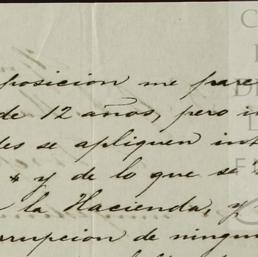 posicion me pare
de 12 años, pero i
es se apliquen int
y de lo que se
la Hacienda, y
rrupcion de ningu